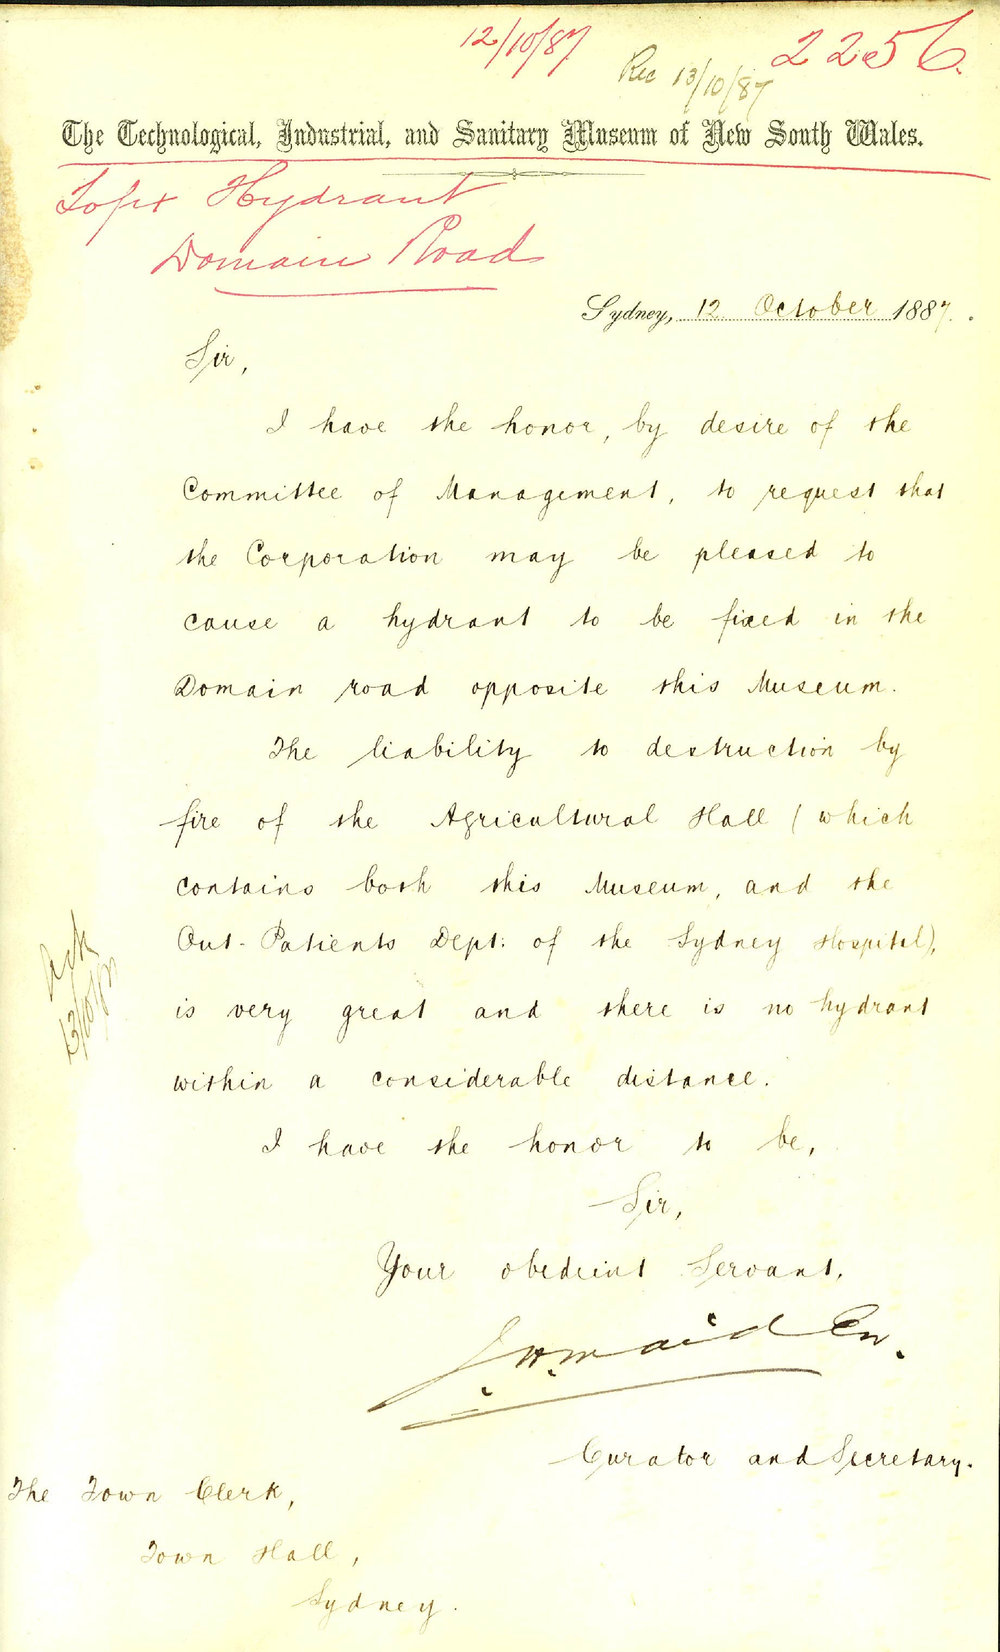 12/10/87
2256.
Rec 13/10/87
The Technological, Industrial, and Sanitary Museum of New South Wales.
To fix Hydrant
Domain Road
Sydney, 12 October 1887.
Sir,
I have the honor, by desire of the
Committee of Management, to request that
the Corporation may be pleased to
cause a hydrant to be fixed in the
Domain road opposite this Museum.
The liability to destruction by
fire of the Agricultural Hall (which
contains both this Museum, and the
Out-Patients Dept: of the Sydney Hospital),
is very great and there is no hydrant
within a considerable distance.
Ack
13/10/87
I have the honor to be,
Sir,
Your obedient Servant,
J. H. Maiden.
Curator and Secretary.
The Town Clerk,
Town Hall,
Sydney.